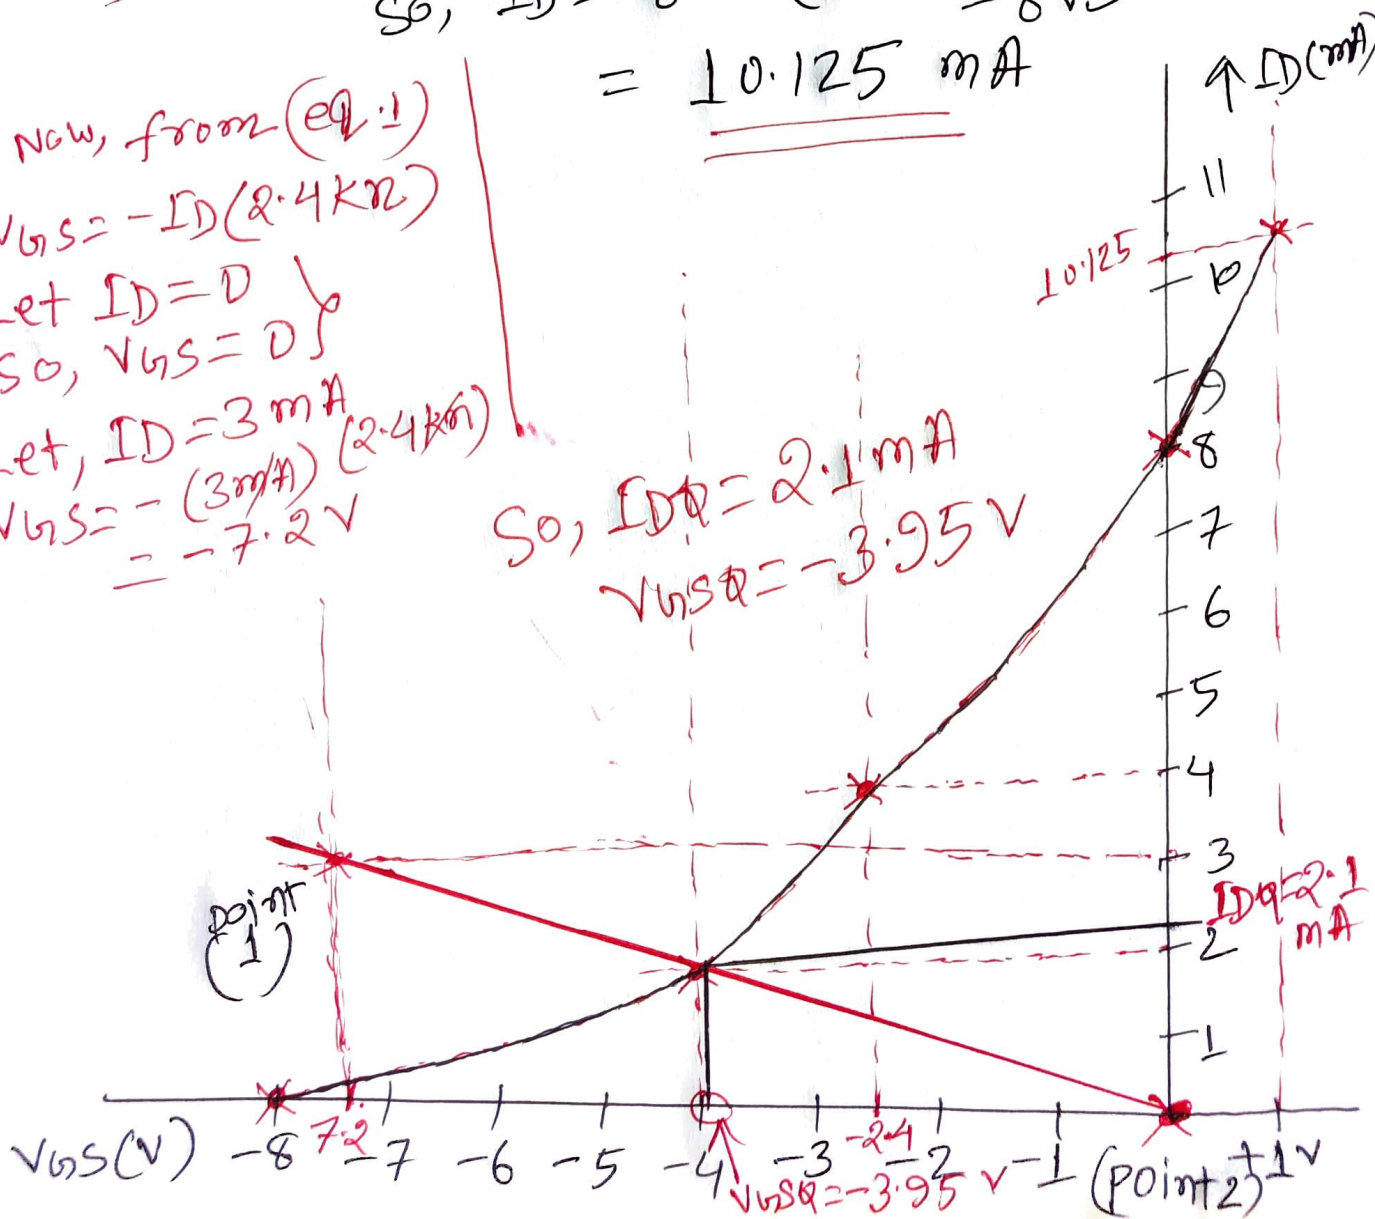 So, ID =
= 10.125 mA
Now, from (eq.1)
VGS = -ID(2.4KΩ)
Let ID = 0
So, VGS = 0 }
Let, ID = 3 mA
VGS = -(3mA)(2.4KΩ)
= -7.2 V
So, IDQ = 2.1 mA
VGSQ = -3.95 V
↑ ID(mA)
11
10.125
10
9
8
7
6
5
4
3
IDQ = 2.1 mA
2
1
point (1)
VGS(V) -8 7.2 -7 -6 -5 -4 -3 -2.4 -2 -1 (point 2) +1V
VGSQ = -3.95 V